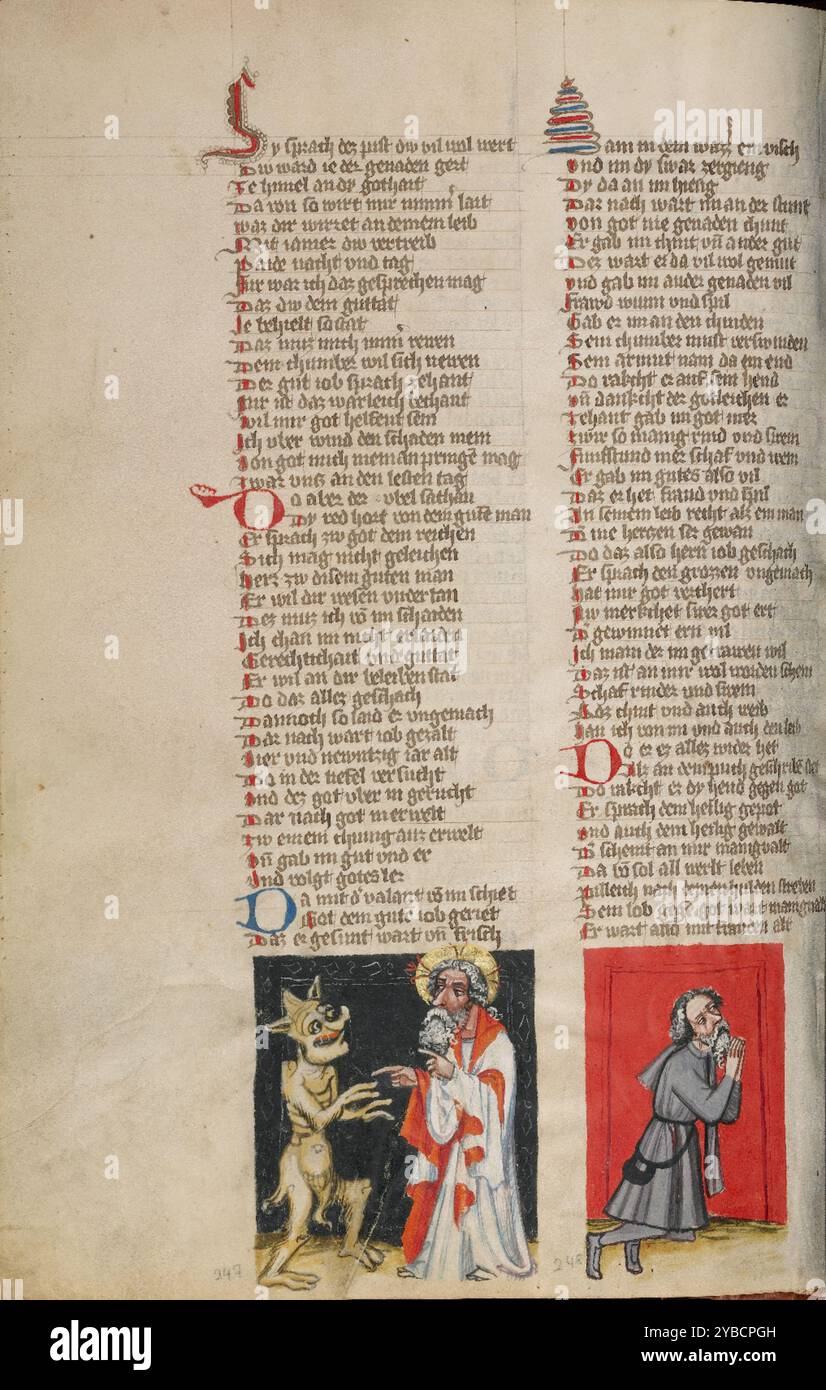 Sy sprach dez pist dw vil wol wert
Dw ward ie der genaden gert
Ze himel an dy gothait
Da von so wirt mir nimm lait
waz dir wirret an deinem leib
Mit iamer dw vertreib
Paide nacht vnd tag
Fur war ich daz gesprechen mag
Daz dw dem guttat
Ie behielt so stat
Daz muz mich nimm rewen
Dem chumber wil sich newen
Der gut iob sprach zehant
Fur ist daz warleich bechant
wil mir got helfent sein
Ich vber wind den schaden mein
Von got mich nieman pringen mag
zwar vntz an den lesten tag
Do aber der vbel sathan
Dy red hort von dem guten man
Er sprach zw got dem reichen
Sich mag nicht geleichen
herz zw disem guten man
Er wil dir wesen vnder tan
Dez muz ich vo im schaiden
Ich chan im nicht
Gerechtichait vnd guttat
Er wil an dir beleiben stat
Do daz allez geschach
Dannoch so laid er vngemach
Dar nach wart iob gezalt
Vier vnd newntzig iar alt
Do in der tiefel versucht
Vnd dez got vber in gerucht
Dar nach got in erwelt
Zw einem chunig auz erwelt
Vn gab im gut vnd er
Vnd volgt gotes ler
Da mit d valant vo im schiet
Got dem gute iob geriet
Daz er gesunt wart vn frisch
Sam in dem waz er visch
Vnd im dy swar zergieng
Dy da an im hieng
Dar nach wart im an der stunt
von got nie genaden chunt
Er gab im chint vn ander gut
Dez wart er da vil wol gemut
vnd gab im ander genaden vil
frawd wunn vnd spil
Gab er im an den chinden
Sein chumber must verswinden
Sein armut nam da ein end
Do rakcht er auf sein hend
vn dankcht der gotleichen er
zehant gab im got mer
zwir so manig rind vnd swein
Funfstund mer schaf vnd wem
Er gab im gutes also vil
Daz er het fraud vnd spil
In seinem leib recht alz ein man
D nie hertzen ser gewan
Do daz also hern iob geschach
Er sprach den grozzen vngemach
hat mir got verchert
Nw merkchet swer got ert
D gewinnet ern vil
Ich main der im getrawen wil
Daz ist an mir wol worden schein
Schaf rinder vnd swein
Daz chint vnd auch weib
han ich von im vnd auch den leib
Do er ez allez wider het
Alz an dem puch geschribe stet
Do rakcht er dy hend gegen got
Er sprach dem heilig gepot
vnd auch dem heilig gewalt
D scheint an mir manigualt
Da vo sol all werlt leben
Pilleich nach deinen hulden streben
Sein lob gege got wart manigualt
Er wart also mit frauden alt
247
248
alamy
Image ID: 2YBCPGH
www.alamy.com